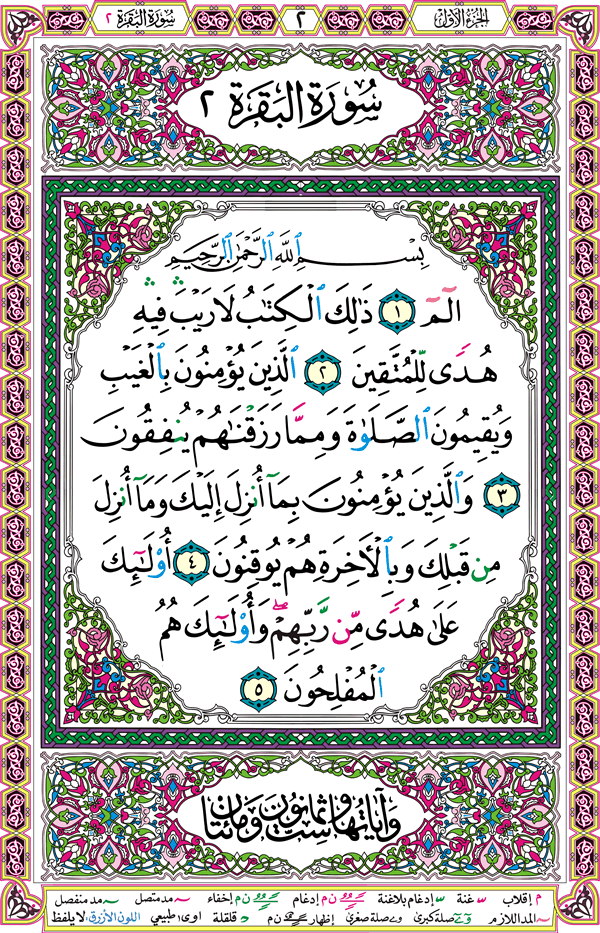 الجزء الأول ٢ سورة البقرة ٢
سُورَةُ الْبَقَرَةِ ٢
بِسْمِ ٱللَّهِ ٱلرَّحْمَٰنِ ٱلرَّحِيمِ
الٓمٓ ١ ذَٰلِكَ ٱلْكِتَٰبُ لَا رَيْبَ ۛ فِيهِ ۛ
هُدًى لِّلْمُتَّقِينَ ٢ ٱلَّذِينَ يُؤْمِنُونَ بِٱلْغَيْبِ
وَيُقِيمُونَ ٱلصَّلَوٰةَ وَمِمَّا رَزَقْنَٰهُمْ يُنفِقُونَ
٣ وَٱلَّذِينَ يُؤْمِنُونَ بِمَآ أُنزِلَ إِلَيْكَ وَمَآ أُنزِلَ
مِن قَبْلِكَ وَبِٱلْأَخِرَةِ هُمْ يُوقِنُونَ ٤ أُوْلَٰٓئِكَ
عَلَىٰ هُدًى مِّن رَّبِّهِمْ ۖ وَأُوْلَٰٓئِكَ هُمُ
ٱلْمُفْلِحُونَ ٥
وَآيَاتُهَا سِتٌّ وَثَمَانُونَ وَمِائَتَانِ
م إقلاب غنة إدغام بلاغنة ن م إدغام ن م إخفاء مد متصل مد منفصل
المد اللازم صلة كبرى صلة صغرى إظهار ن م قلقلة اوى طبيعي اللون الأزرق: لا يلفظ